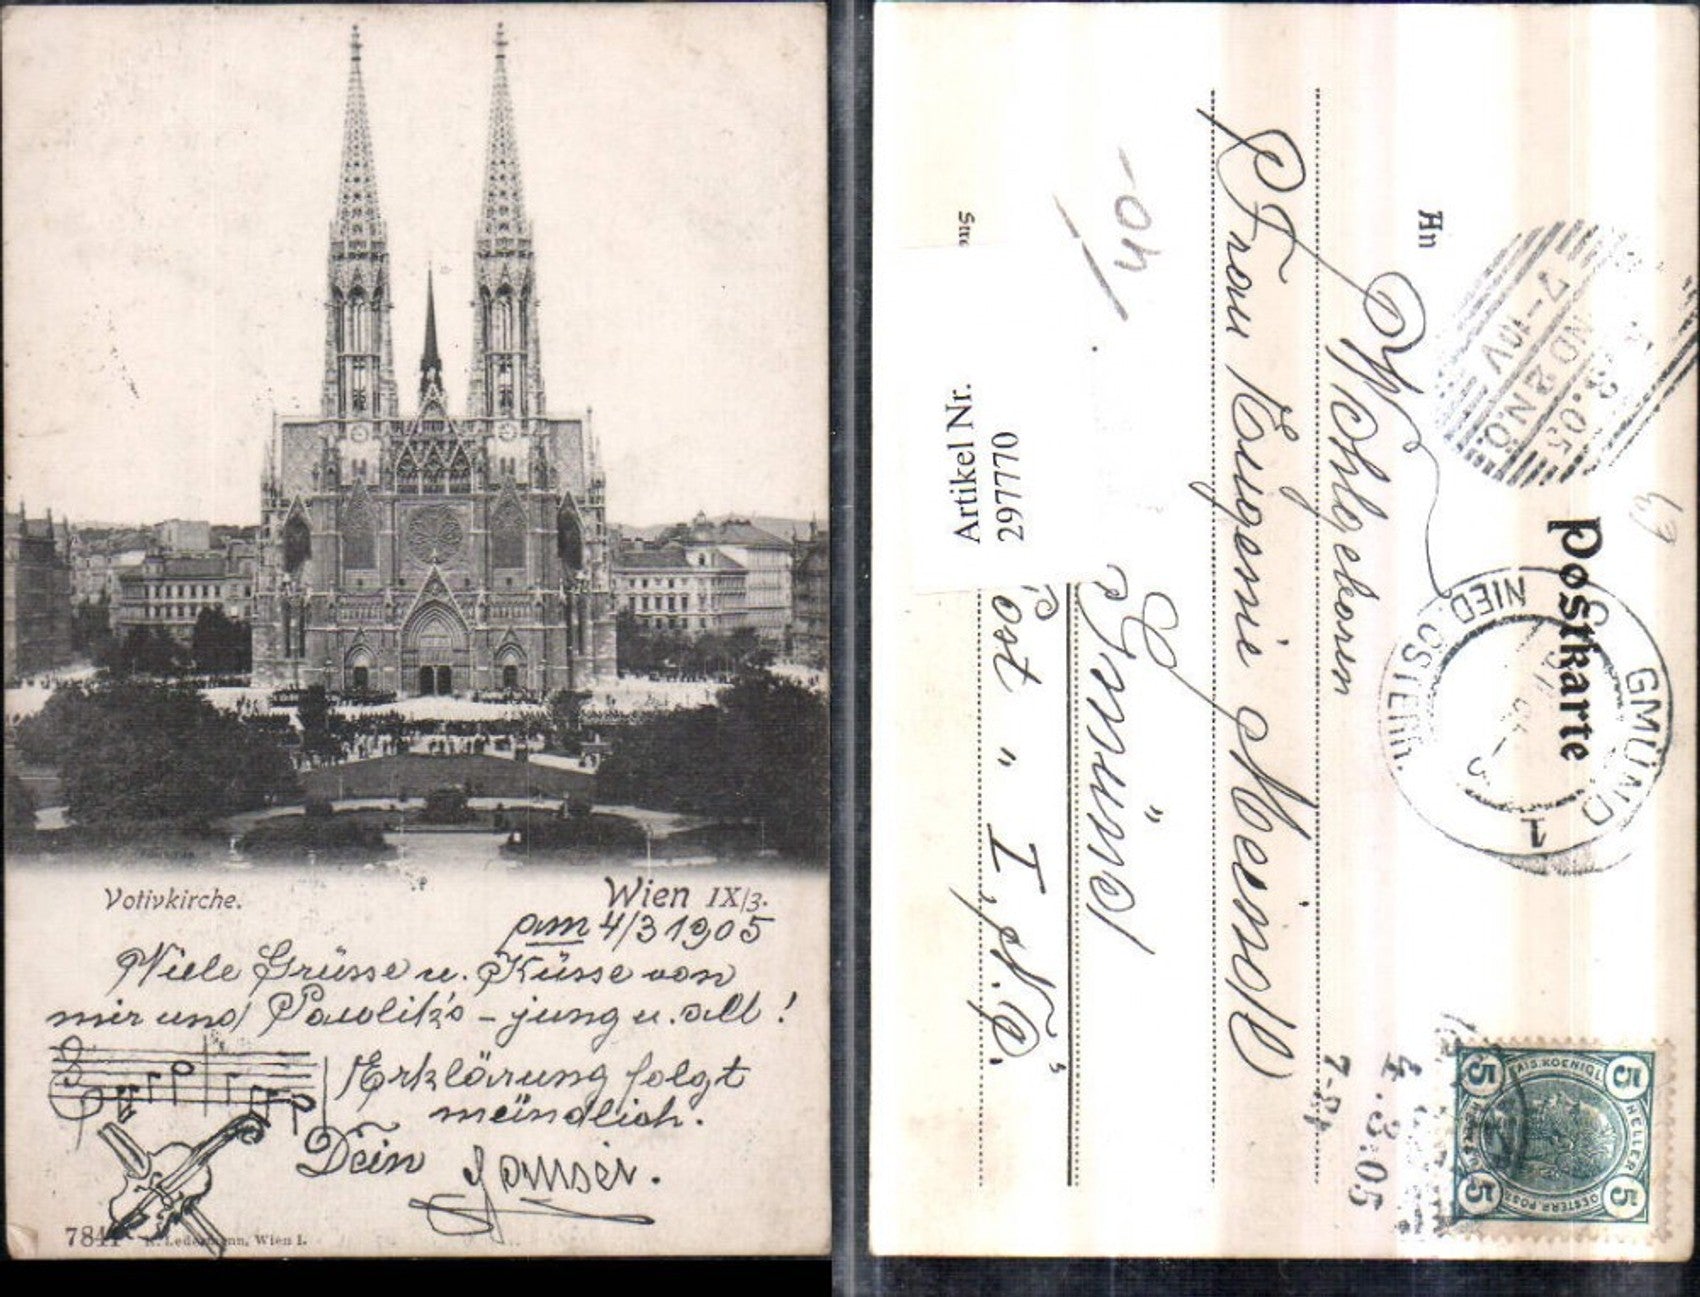 Votivkirche.
Wien IX/3.
am 4/3 1905
Viele Grüsse u. Küsse von
mir und Pawlik's - jung u. alt!
Erklärung folgt
mündlich.
Dein
7841
R. Ledermann, Wien I.
Postkarte
An
Wohlgeboren
Frau Eugenie Meinold
Gmünd
Post " I, N. Ö.
Artikel Nr.
297770
40-
GMÜND
NIED. ÖSTERR.
1
3.05
ND 2 N.O.
7-10V
4.3.05
7-
KAIS. KOENIGL.
OESTERR. POST
5 5
5 5
HELLER